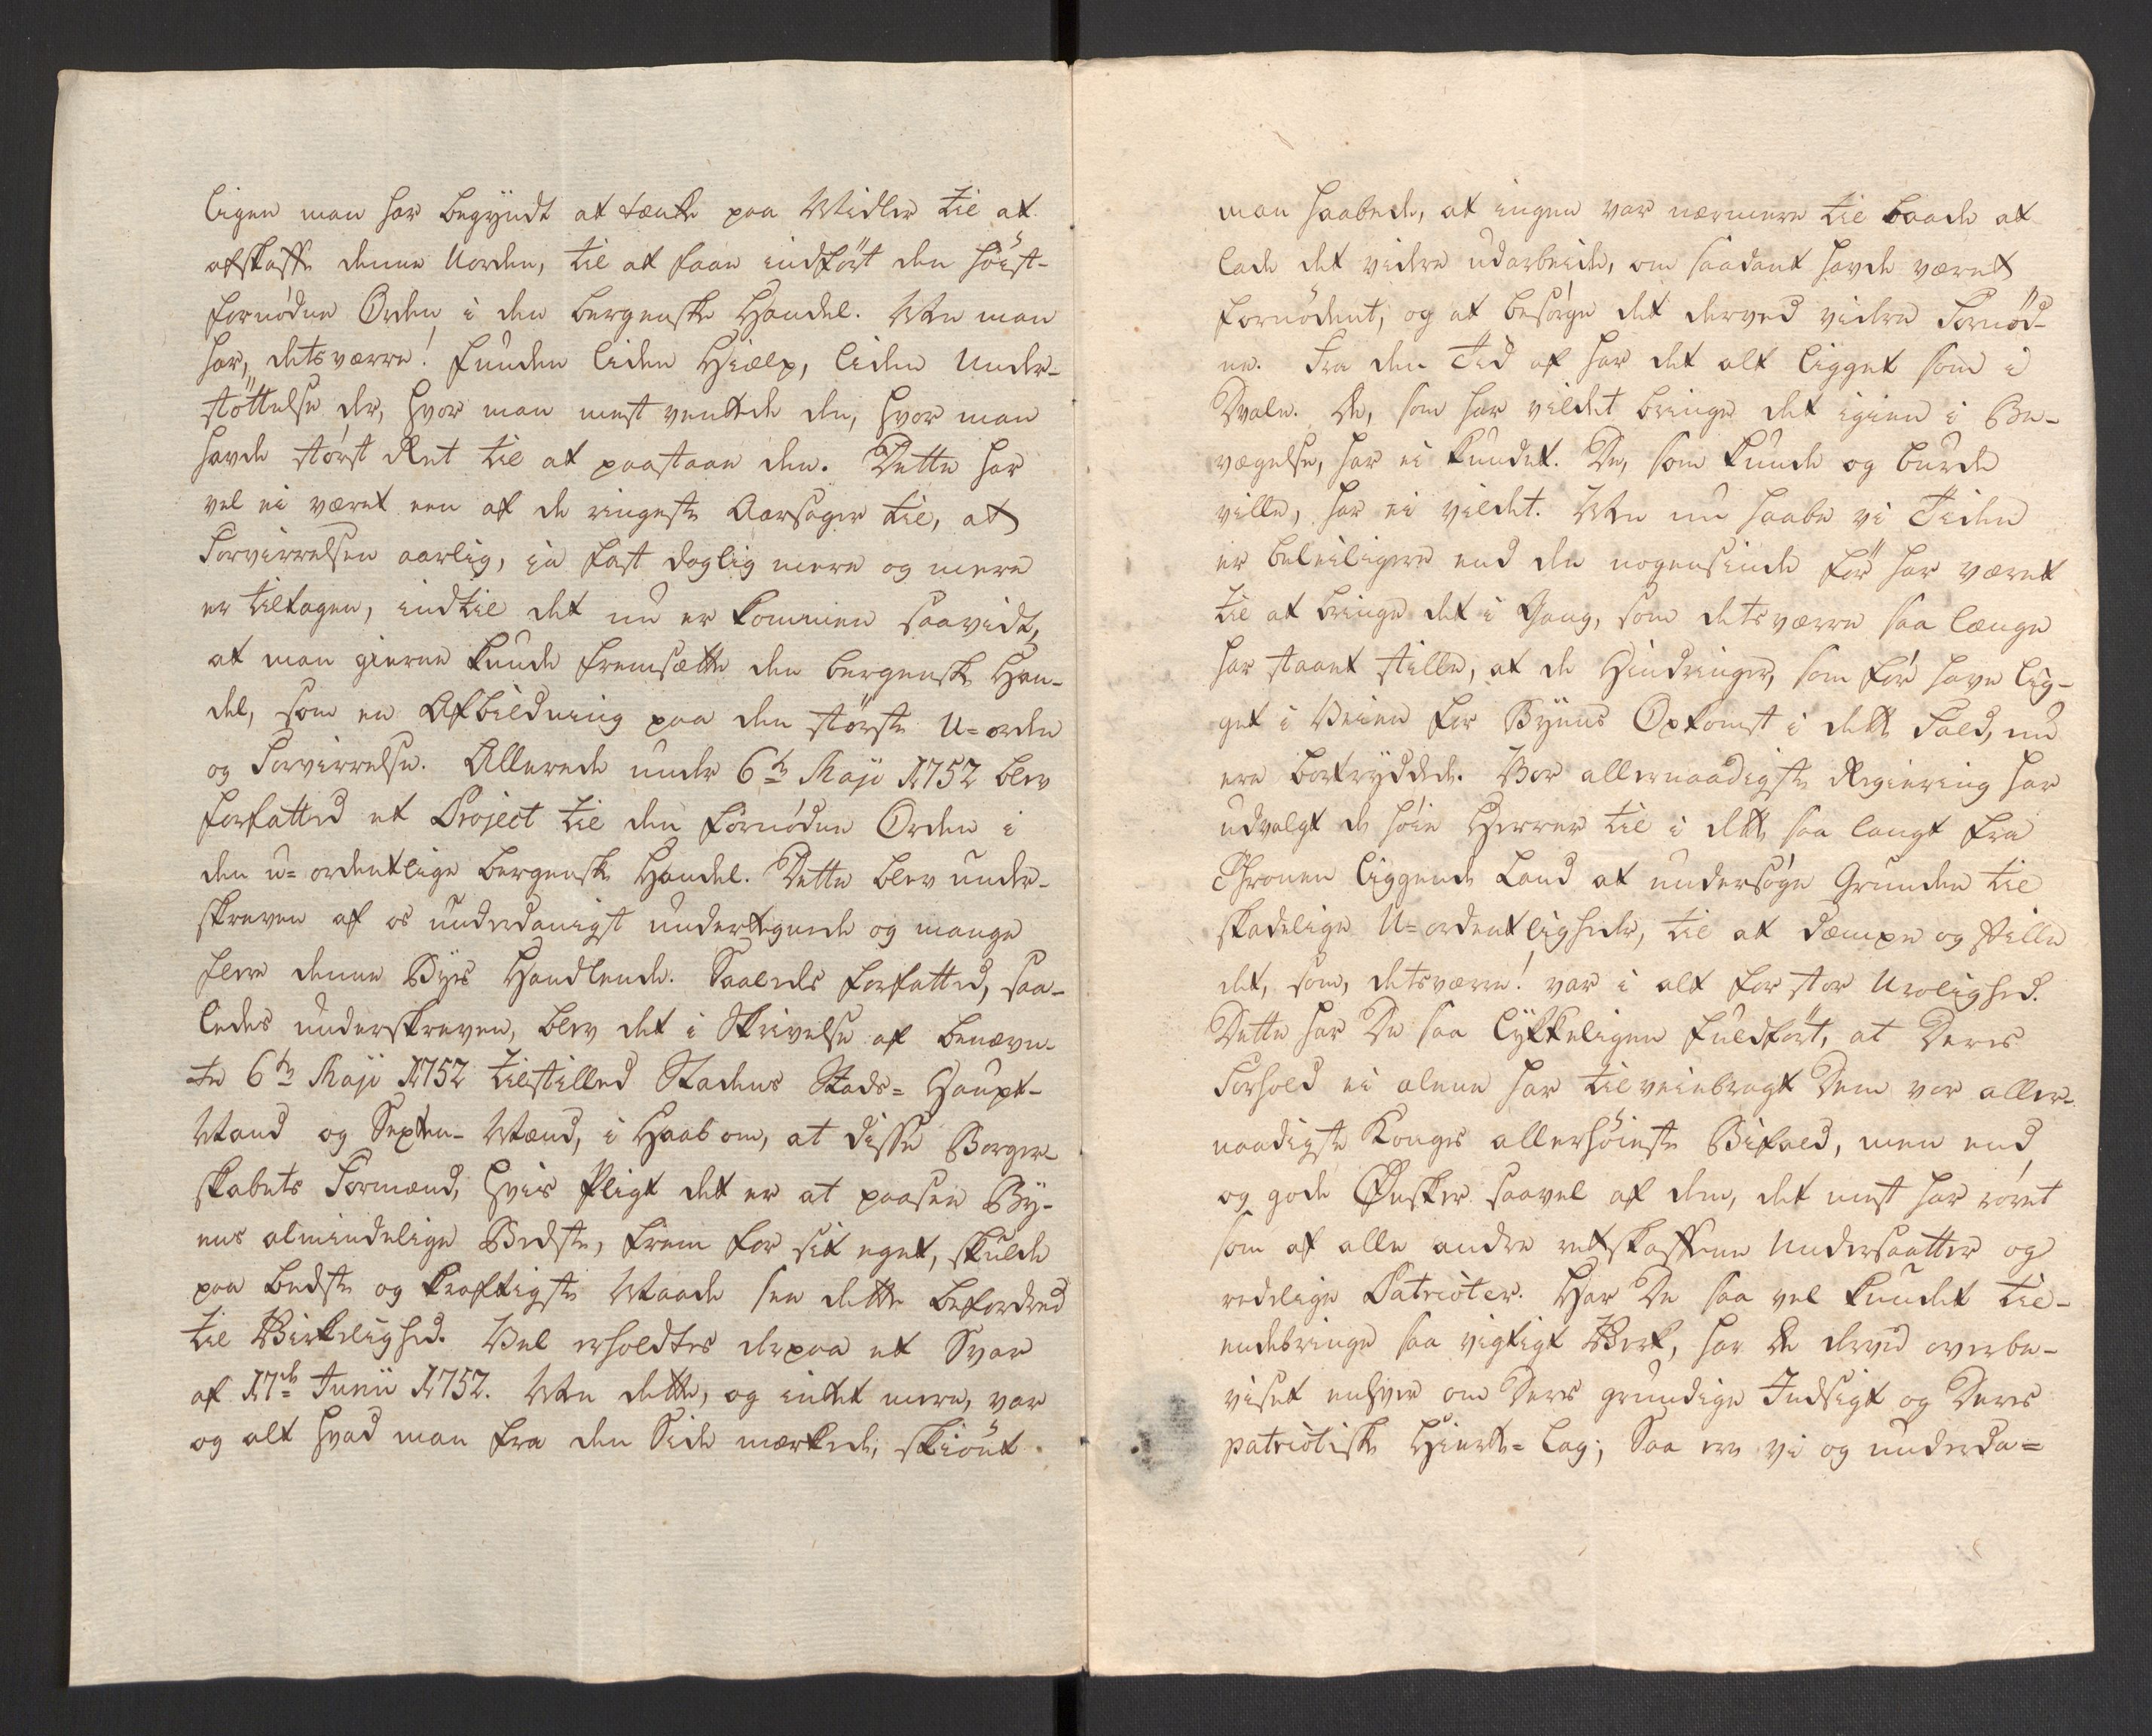 ligen man har begyndt at tænke paa Midler til at
afskaffe denne Uorden, til at faae indført den høist-
fornødne Orden i den bergenske Handel. Men man
har, detsværre! funden liden Hielp, liden Under-
støttelse der, hvor man mest ventede den, hvor man
havde størst Ret til at paastaae den. Dette har
vel ei været een af de ringeste Aarsager til, at
Forvirrelsen aarlig, ja fast daglig mere og mere
er tiltagen, indtil det nu er kommen saavidt,
at man gierne kunde fremsætte den bergenske Han-
del, som en Afbildning paa den største U-orden
og Forvirrelse. Allerede under 6te Maji 1752 blev
forfatted et Project til den fornødne Orden i
den u-ordentlige bergenske Handel. Dette blev under-
skreven af os underdanigst undertegnede og mange
flere denne Byes Handlende. Saaledes forfatted, saa-
ledes underskreven, blev det i Skrivelse af benævn-
te 6te Maji 1752 tilstilled Stadens Stads-Haupt-
Mand og Sexten-Mænd, i Haab om, at disse Borger-
skabets Formænd, hvis Pligt det er at paasee By-
ens almindelige Bedste, frem for sit eget, skulde
paa bedste og kraftigste Maade see dette befordred
til Virkelighed. Vel erholdtes derpaa et Svar
af 17de Junii 1752. Men dette, og intet mere, var
og alt hvad man fra den Side mærkede, skiønt
man haabede, at ingen var nærmere til baade at
lade det videre udarbeide, om saadant havde været
fornødent, og at besørge det derved videre Fornød-
ne. Fra den Tid af har det alt ligget som i
Dvale. De, som har vildet bringe det igien i Be-
vægelse, har ei kundet. De, som kunde og burde
ville, har ei vildet. Men nu haabe vi Tiden
er beleiligere end den nogensinde før har været
til at bringe det i Gang, som detsværre saa længe
har staaet stille, at de Hindringer, som før have lig-
get i Veien for Byens Opkomst i dette Fald, nu
ere bortryddede. Vor allernaadigste Regiering har
udvalgt de høie Herrer til i dette saa langt fra
Thronen liggende Land at undersøge Grunden til
skadelige U-ordentligheder, til at dæmpe og stille
det, som, detsværre! var i alt for stor Urolighed.
Dette har De saa lykkeligen fuldført, at Deres
Forhold ei alene har tilveiebragt Dem vor aller-
naadigste Konges allerhøieste Bifald, men end
og gode Ønsker saavel af dem, det mest har røret
som af alle andre retskaffene Undersaatter og
redelige Patrioter. Har De saa vel kundet til-
endebringe saa vigtigt Verk, har De derved overbe-
viset enhver om Deres grundige Indsigt og Deres
patriotiske Hierte-Lag; Saa ere vi og underda-